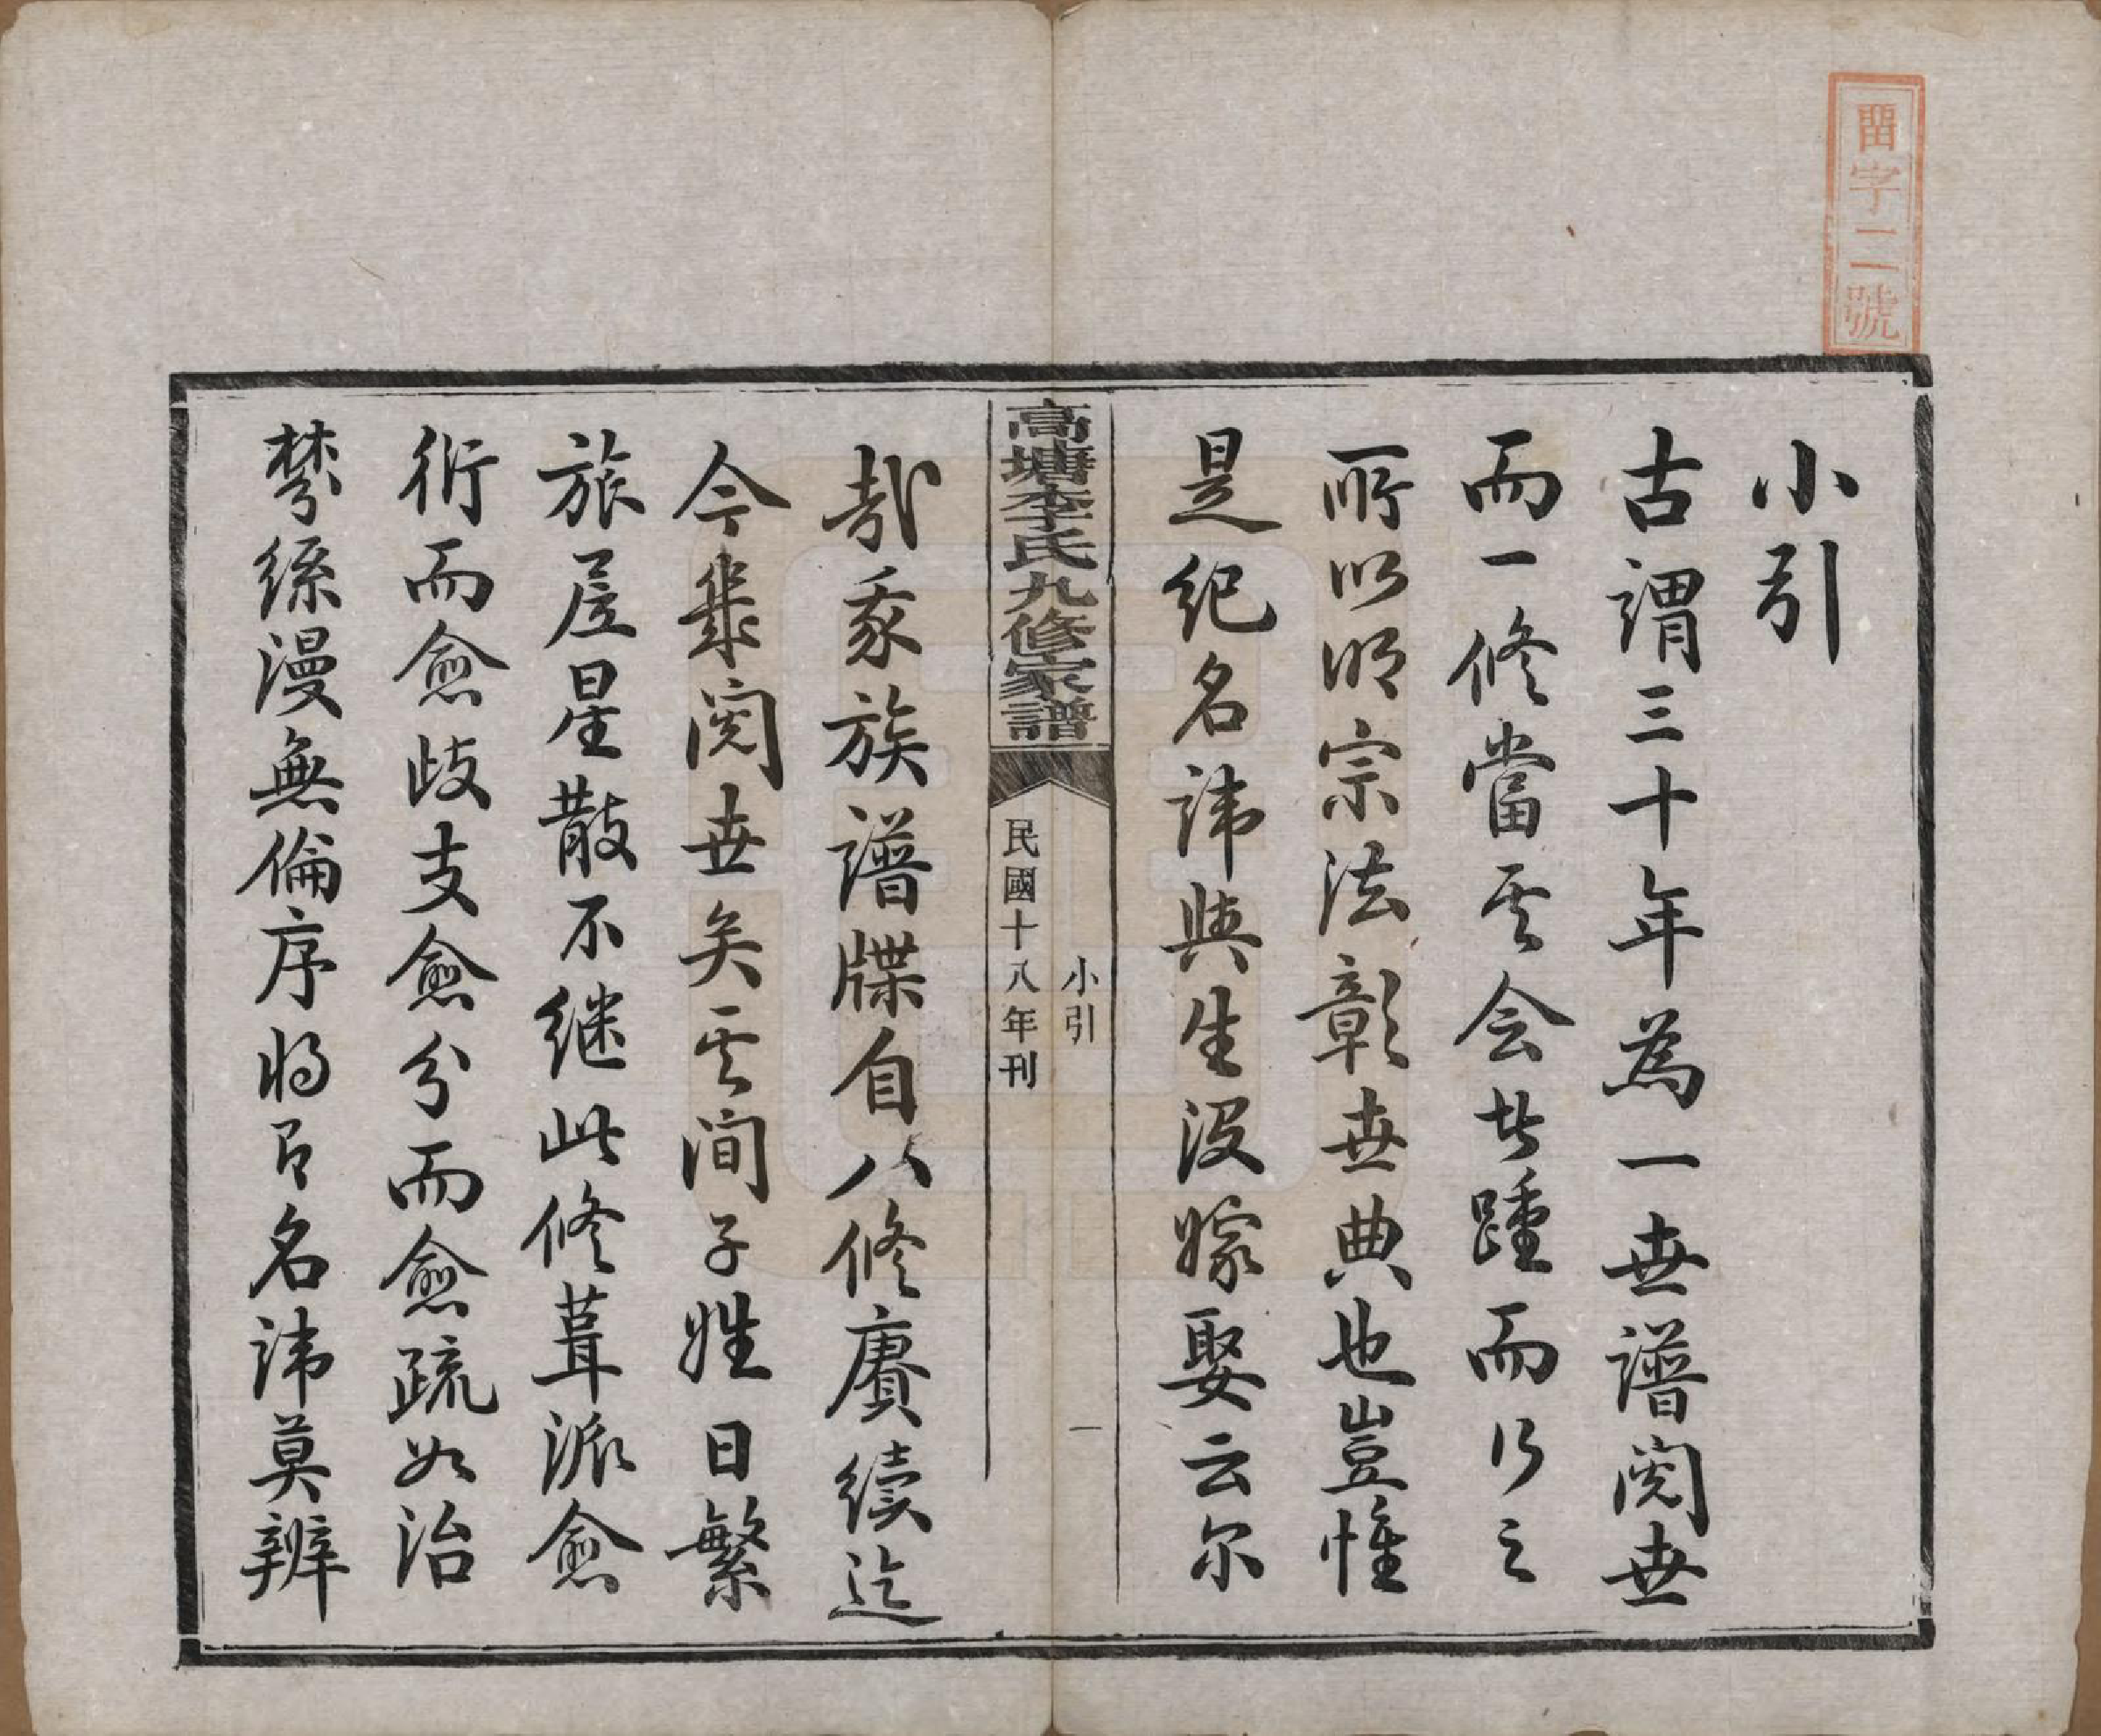 畱字二號
小引
古謂三十年為一世譜閱世
而一修當其会者踵而行之
所以明宗法彰世典也豈惟
是紀名諱與生沒嫁娶云尔
高塘李氏九修家譜
小引
一
民國十八年刊
哉我族譜牒自八修賡續迄
今閱世矣其間子姓日繁
旅居星散不继此修葺派愈
衍而愈歧支愈分而愈疏如治
棼絲漫無倫序将名諱莫辨